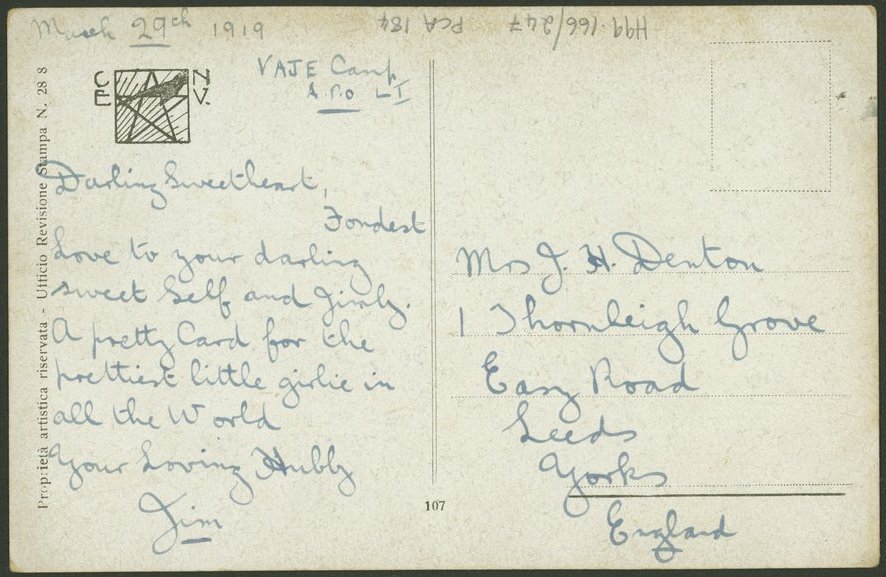 March 29th 1919
H99.166/247 PCA 184
VAJE Camp
A.P.O L I
C E N V.
Proprietà artistica riservata - Ufficio Revisione Stampa N. 28 8
Darling Sweetheart,
Fondest
Love to your darling
sweet Self and
A pretty Card for the
prettiest little girlie in
all the World
Your Loving Hubby
Jim
107
Mrs J. H. Denton
1 Thornleigh Grove
Easy Road
Leeds
Yorks
England